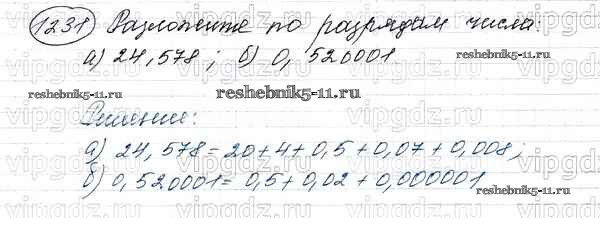 1231 Разложите по разрядам числа:
а) 24,578; б) 0,520001.
reshebnik5-11.ru
reshebnik5-11.ru
Решение:
а) 24,578 = 20 + 4 + 0,5 + 0,07 + 0,008;
б) 0,520001 = 0,5 + 0,02 + 0,000001
reshebnik5-11.ru